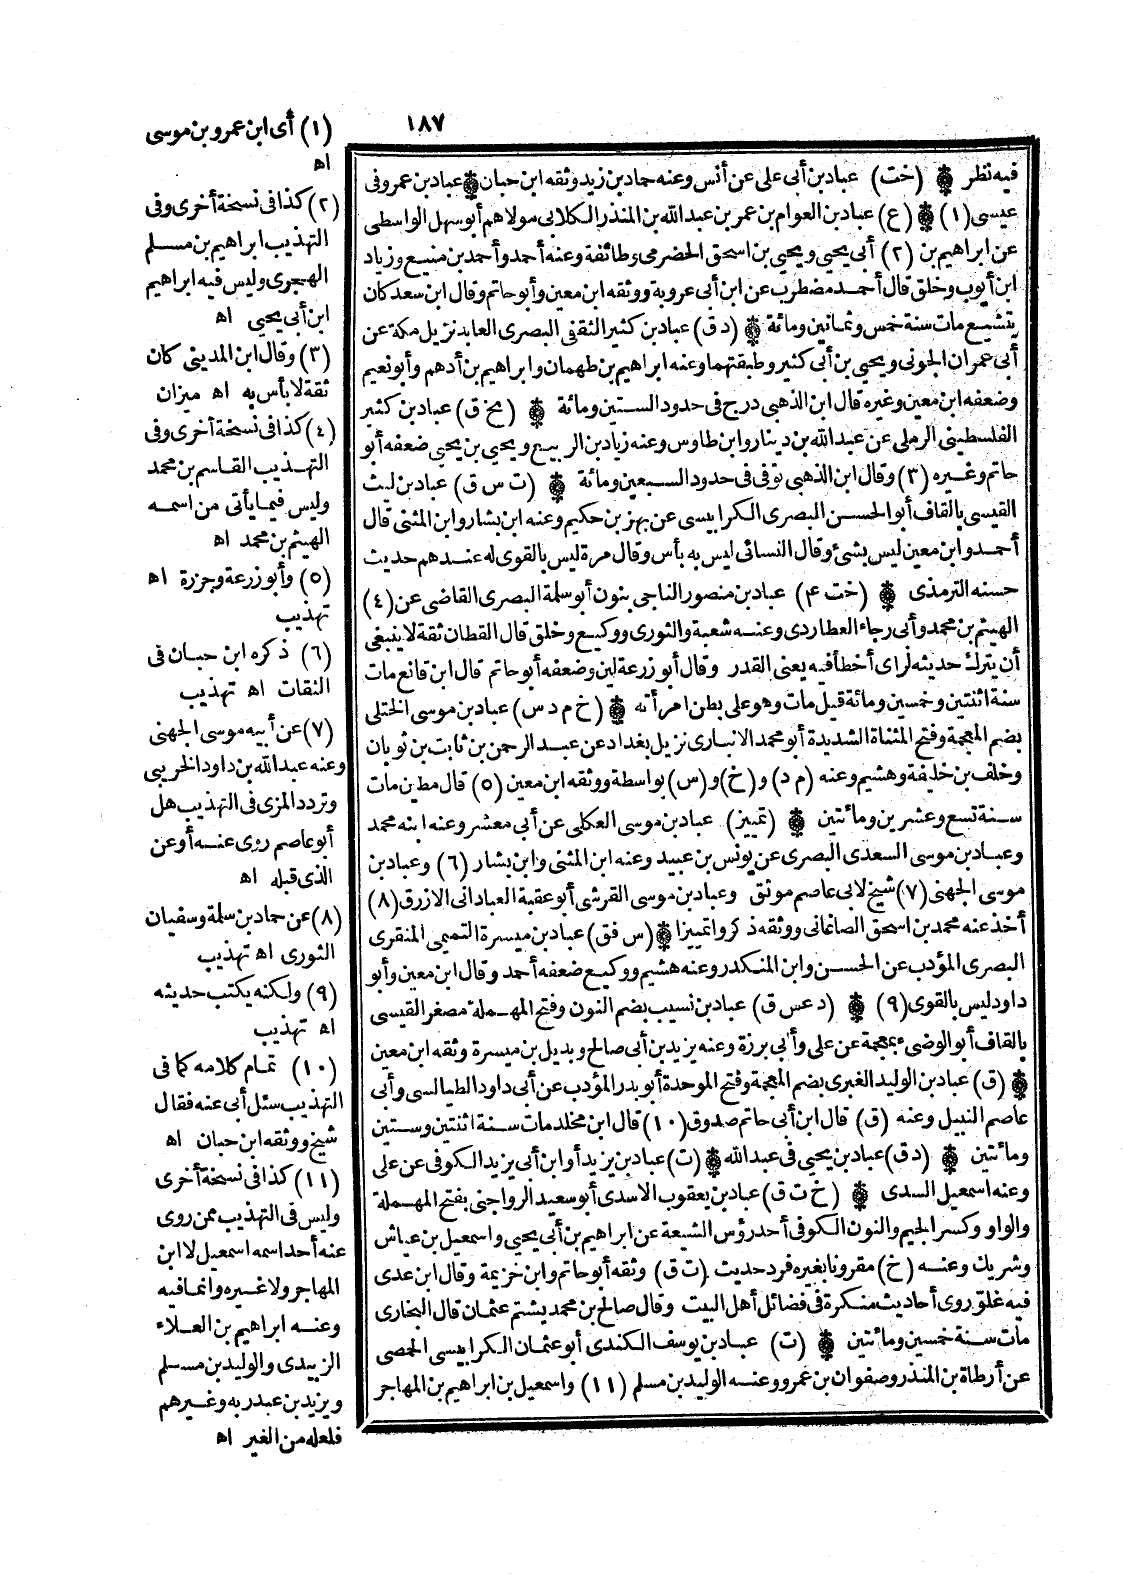 ١٨٧
فيه نظر ۞ (خت) عباد بن أبى على عن أنس وعنه حماد بن زيد وثقه ابن حبان ۞ عباد بن عمرو فى
عيسى (١) ۞ (ع) عباد بن العوام بن عمر بن عبد الله بن المنذر الكلابى مولاهم أبو سهل الواسطى
عن ابراهيم بن (٢) أبى يحيى ويحيى بن اسحق الحضرمى وطائفة وعنه أحمد وأحمد بن منيع وزياد
ابن أيوب وخلق قال أحمد مضطرب عن ابن أبى عروبة ووثقه ابن معين وأبو حاتم وقال ابن سعد كان
يتشيع مات سنة خمس وثمانين ومائة ۞ (د ق) عباد بن كثير الثقفى البصرى العابد نزيل مكة عن
أبى عمران الجونى ويحيى بن أبى كثير وطبقتهما وعنه ابراهيم بن طهمان وابراهيم بن أدهم وأبو نعيم
وضعفه ابن معين وغيره قال ابن الذهبى درج فى حدود الستين ومائة ۞ (بخ ق) عباد بن كثير
الفلسطينى الرملى عن عبد الله بن دينار وابن طاوس وعنه زياد بن الربيع ويحيى بن يحيى ضعفه أبو
حاتم وغيره (٣) وقال ابن الذهبى توفى فى حدود السبعين ومائة ۞ (ت س ق) عباد بن ليث
القيسى بالقاف أبو الحسن البصرى الكرابيسى عن بهز بن حكيم وعنه ابن بشار وابن المثنى قال
أحمد وابن معين ليس بشئ وقال النسائى ليس به بأس وقال مرة ليس بالقوى له عندهم حديث
حسنه الترمذى ۞ (خت ٤) عباد بن منصور الناجى بنون أبو سلمة البصرى القاضى عن (٤)
الهيثم بن محمد وأبى رجاء العطاردى وعنه شعبة والثورى ووكيع وخلق قال القطان ثقة لا ينبغى
أن يترك حديثه لرأى أخطأ فيه يعنى القدر وقال أبو زرعة لين وضعفه أبو حاتم قال ابن قانع مات
سنة اثنتين وخمسين ومائة قيل مات وهو على بطن امرأته ۞ (خ م د س) عباد بن موسى الختلى
بضم المعجمة وفتح المثناة الشديدة أبو محمد الانبارى نزيل بغداد عن عبد الرحمن بن ثابت بن ثوبان
وخلف بن خليفة وهشيم وعنه (م د) و(خ) و(س) بواسطة ووثقه ابن معين (٥) قال مطين مات
سنة تسع وعشرين ومائتين ۞ (تمييز) عباد بن موسى العكلى عن أبى معشر وعنه ابنه محمد
وعباد بن موسى السعدى البصرى عن يونس بن عبيد وعنه ابن المثنى وابن بشار (٦) وعباد بن
موسى الجهنى (٧) شيخ لابى عاصم موثق وعباد بن موسى القرشى أبو عقبة العبادانى الازرق (٨)
أخذ عنه محمد بن اسحق الصاغانى ووثقه ذكروا تمييزا ۞ (س فق) عباد بن ميسرة التميمى المنقرى
البصرى المؤدب عن الحسن وابن المنكدر وعنه هشيم ووكيع ضعفه أحمد وقال ابن معين وأبو
داود ليس بالقوى (٩) ۞ (د عس ق) عباد بن نسيب بضم النون وفتح المهملة مصغر القيسى
بالقاف أبو الوضىء بمعجمة عن على وأبى برزة وعنه يزيد بن أبى صالح وبديل بن ميسرة وثقه ابن معين
۞ (ق) عباد بن الوليد الغبرى بضم المعجمة وفتح الموحدة أبو بدر المؤدب عن أبى داود الطيالسى وأبى
عاصم النبيل وعنه (ق) قال ابن أبى حاتم صدوق (١٠) قال ابن مخلد مات سنة اثنتين وستين
ومائتين ۞ (د ق) عباد بن يحيى فى عبد الله ۞ (ت) عباد بن يزيد أو ابن أبى يزيد الكوفى عن على
وعنه اسمعيل السدى ۞ (خ ت ق) عباد بن يعقوب الاسدى أبو سعيد الرواجنى بفتح المهملة
والواو وكسر الجيم والنون الكوفى أحد رؤس الشيعة عن ابراهيم بن أبى يحيى واسمعيل بن عياش
وشريك وعنه (خ) مقرونا بغيره فرد حديث (ت ق) وثقه أبو حاتم وابن خزيمة وقال ابن عدى
فيه غلو روى أحاديث منكرة فى فضائل أهل البيت وقال صالح بن محمد يشتم عثمان قال البخارى
مات سنة خمسين ومائتين ۞ (ت) عباد بن يوسف الكندى أبو عثمان الكرابيسى الحمصى
عن أرطاة بن المنذر وصفوان بن عمرو وعنه الوليد بن مسلم (١١) واسمعيل بن ابراهيم بن المهاجر
(١) أى ابن عمرو بن موسى
اه
(٢) كذا فى نسخة أخرى وفى
التهذيب ابراهيم بن مسلم
الهجرى وليس فيه ابراهيم
ابن أبى يحيى اه
(٣) وقال ابن المدينى كان
ثقة لا بأس به اه ميزان
(٤) كذا فى نسخة أخرى وفى
التهذيب القاسم بن محمد
وليس فيما يأتى من اسمه
الهيثم بن محمد اه
(٥) وأبو زرعة وجزرة اه
تهذيب
(٦) ذكره ابن حبان فى
الثقات اه تهذيب
(٧) عن أبيه موسى الجهنى
وعنه عبد الله بن داود الخريبى
وتردد المزى فى التهذيب هل
أبو عاصم روى عنه أو عن
الذى قبله اه
(٨) عن حماد بن سلمة وسفيان
الثورى اه تهذيب
(٩) ولكنه يكتب حديثه
اه تهذيب
(١٠) تمام كلامه كما فى
التهذيب سئل أبى عنه فقال
شيخ ووثقه ابن حبان اه
(١١) كذا فى نسخة أخرى
وليس فى التهذيب ممن روى
عنه أحد اسمه اسمعيل لا ابن
المهاجر ولا غيره وانما فيه
وعنه ابراهيم بن العلاء
الزبيدى والوليد بن مسلم
ويزيد بن عبد ربه وغيرهم
فلعله من الغير اه